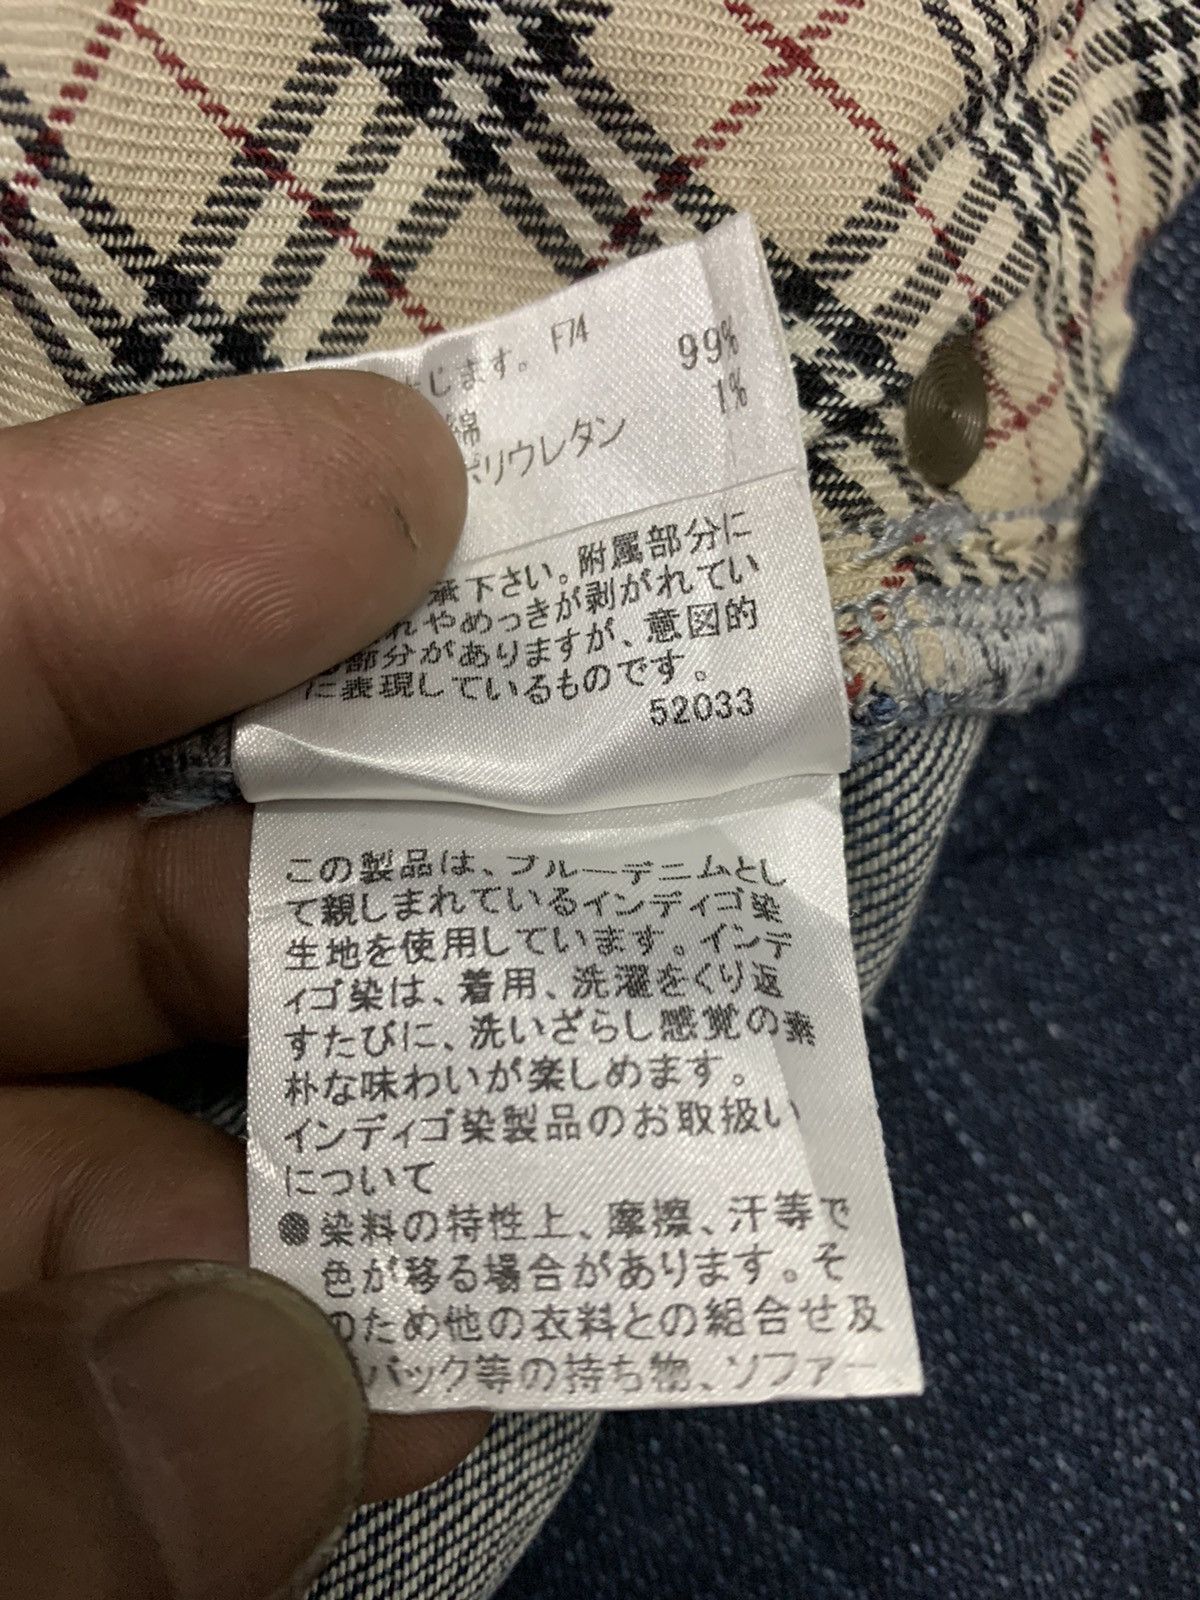 じます。 F74
綿 99%
ポリウレタン 1%
承下さい。附属部分に
れやめっきが剥がれてい
部分がありますが、意図的
に表現しているものです。
52033
この製品は、ブルーデニムとし
て親しまれているインディゴ染
生地を使用しています。インデ
ィゴ染は、着用、洗濯をくり返
すたびに、洗いざらし感覚の素
朴な味わいが楽しめます。
インディゴ染製品のお取扱い
について
●染料の特性上、摩擦、汗等で
色が移る場合があります。そ
のため他の衣料との組合せ及
バック等の持ち物、ソファー